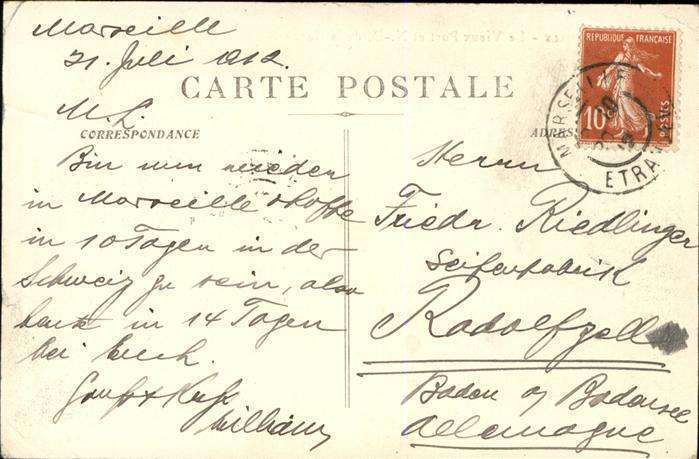 Marseille
21. Juli 1912.
CARTE POSTALE
M. L.
CORRESPONDANCE
Bin nun wieder
in Marseille & hoffe
in 10 Tagen in der
Schweiz zu sein, also
heute in 14 Tagen
bei Euch.
Gruß & Kuß
William
REPUBLIQUE FRANÇAISE
10
POSTES
MARSEILLE
ETRANGER
ADRESSE
Herrn
Friedr. Riedlinger
Seifenfabrik
Radolfzell
Baden a/ Bodensee
Allemagne